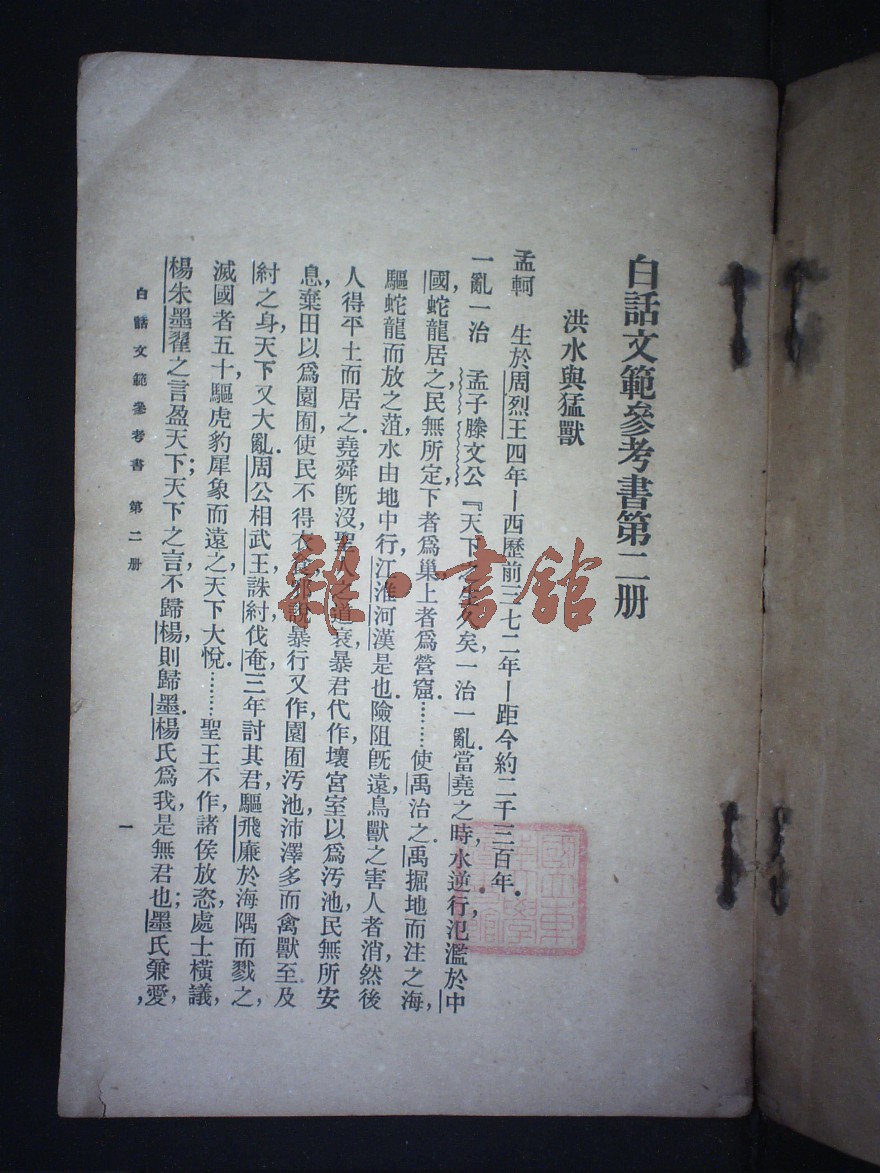 白話文範參考書第二册
洪水與猛獸
孟軻　生於周烈王四年—西歷前三七二年—距今約二千三百年．
一亂一治　孟子滕文公『天下之生久矣，一治一亂．當堯之時，水逆行，氾濫於中
國，蛇龍居之，民無所定，下者爲巢，上者爲營窟．………使禹治之．禹掘地而注之海，
驅蛇龍而放之菹，水由地中行，江淮河漢是也．險阻旣遠，鳥獸之害人者消，然後
人得平土而居之．堯舜旣沒，聖人之道衰，暴君代作，壞宮室以爲汚池，民無所安
息，棄田以爲園囿，使民不得衣食，邪說暴行又作，園囿汚池沛澤多而禽獸至．及
紂之身，天下又大亂．周公相武王，誅紂伐奄，三年討其君，驅飛廉於海隅而戮之，
滅國者五十，驅虎豹犀象而遠之，天下大悅．………聖王不作，諸侯放恣，處士橫議，
楊朱墨翟之言盈天下；天下之言，不歸楊，則歸墨．楊氏爲我，是無君也；墨氏兼愛，
白話文範參考書　第二册
一
雜·書館